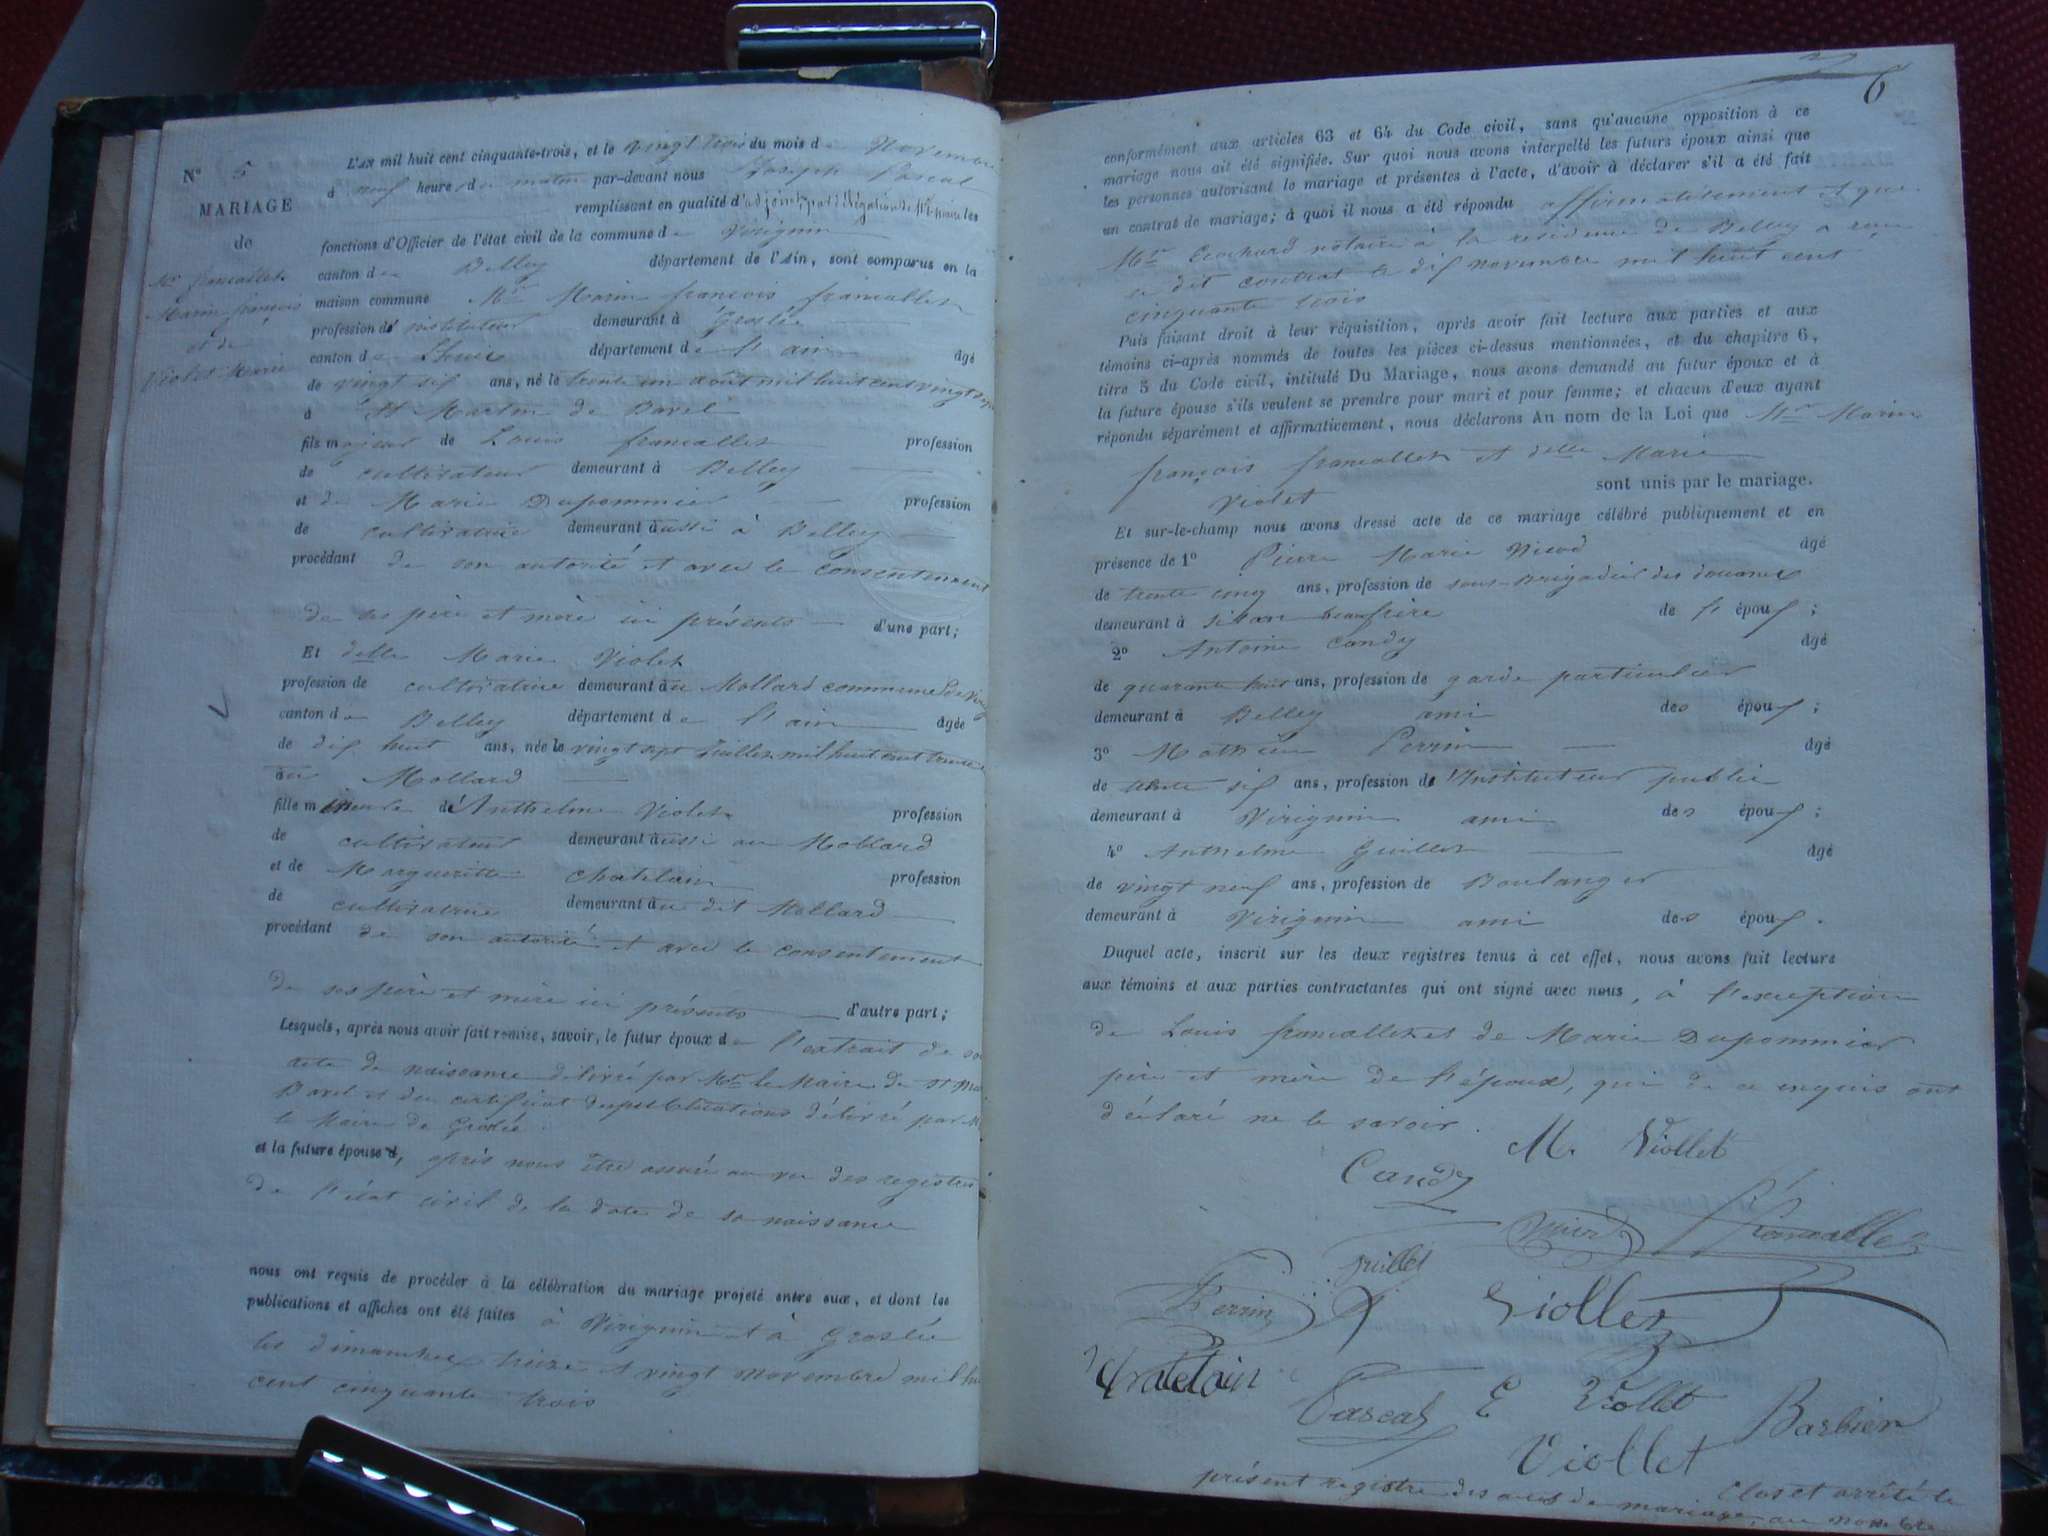 N° 5
MARIAGE
de
Mr francallet
Marin françois
et de
Violet Marie
L'AN mil huit cent cinquante-trois, et le vingt trois du mois de Novembre
à neuf heures du matin par-devant nous Joseph Pascal
remplissant en qualité d'adjoint, par délégation de Mr le maire les
fonctions d'Officier de l'état civil de la commune de Virignin
canton de Belley département de l'Ain, sont comparus en la
maison commune Mr Marin françois francallet
profession d'instituteur demeurant à Groslée
canton de Lhuis département de l'ain âgé
de vingt six ans, né le trente un août mil huit cent vingt sept
à St Martin de Bavel
fils majeur de Louis francallet profession
de cultivateur demeurant à Belley
et de Marie Dupommier profession
de cultivatrice demeurant aussi à Belley
procédant de son autorité et avec le consentement
de ses père et mère ici présents d'une part;
Et delle Marie Violet
profession de cultivatrice demeurant au Mollard commune de Virig
canton de Belley département de l'ain âgée
de dix huit ans, née le vingt sept Juillet mil huit cent trente
au Mollard
fille mineure d'Anthelme Violet profession
de cultivateur demeurant aussi au Mollard
et de Margueritte chatelain profession
de cultivatrice demeurant au dit Mollard
procédant de son autorité et avec le consentement
de ses père et mère ici présents d'autre part;
Lesquels, après nous avoir fait remise, savoir, le futur époux de l'extrait de so
acte de naissance délivré par Mr le Maire de St Mar
Bavel et du certificat de publications délivré par M
le Maire de Groslée
et la future épouse d, après nous être assuré au vu des registres
de l'état civil de la date de sa naissance
nous ont requis de procéder à la célébration du mariage projeté entre eux, et dont les
publications et affiches ont été faites à Virignin et à Groslée
les dimanches treize et vingt novembre mil hu
cent cinquante trois
6
conformément aux articles 63 et 64 du Code civil, sans qu'aucune opposition à ce
mariage nous ait été signifiée. Sur quoi nous avons interpellé les futurs époux ainsi que
les personnes autorisant le mariage et présentes à l'acte, d'avoir à déclarer s'il a été fait
un contrat de mariage; à quoi il nous a été répondu affirmativement et que
Mr Cochard notaire à la residence de Belley a reçu
ce dit contrat le dix novembre mil huit cent
cinquante trois
Puis faisant droit à leur réquisition, après avoir fait lecture aux parties et aux
témoins ci-après nommés de toutes les pièces ci-dessus mentionnées, et du chapitre 6,
titre 5 du Code civil, intitulé Du Mariage, nous avons demandé au futur époux et à
la future épouse s'ils veulent se prendre pour mari et pour femme; et chacun d'eux ayant
répondu séparément et affirmativement, nous déclarons Au nom de la Loi que Mr Marin
françois francallet et delle Marie
Violet sont unis par le mariage.
Et sur-le-champ nous avons dressé acte de ce mariage célébré publiquement et en
présence de 1° Pierre Marie Vicod âgé
de trente cinq ans, profession de sous-Brigadier des douanes
demeurant à beaufrère de l'époux;
2° Antoine Candy âgé
de quarante huit ans, profession de garde particulier
demeurant à Belley ami des époux;
3° Mathieu Perrin âgé
de trente six ans, profession de l'Instituteur public
demeurant à Virignin ami des époux;
4° Anthelme Guillet âgé
de vingt neuf ans, profession de Boulanger
demeurant à Virignin ami des époux.
Duquel acte, inscrit sur les deux registres tenus à cet effet, nous avons fait lecture
aux témoins et aux parties contractantes qui ont signé avec nous, à l'exception
de Louis francallet et de Marie Dupommier
père et mère de l'époux, qui de ce enquis ont
déclaré ne le savoir.
M. Viollet
Candy
Vicod francallet
Perrin guillet Viollet
Chatelain Pascal E Viollet Barbier
Viollet
Clos et arrêté le
présent registre des actes de mariage, au nombre